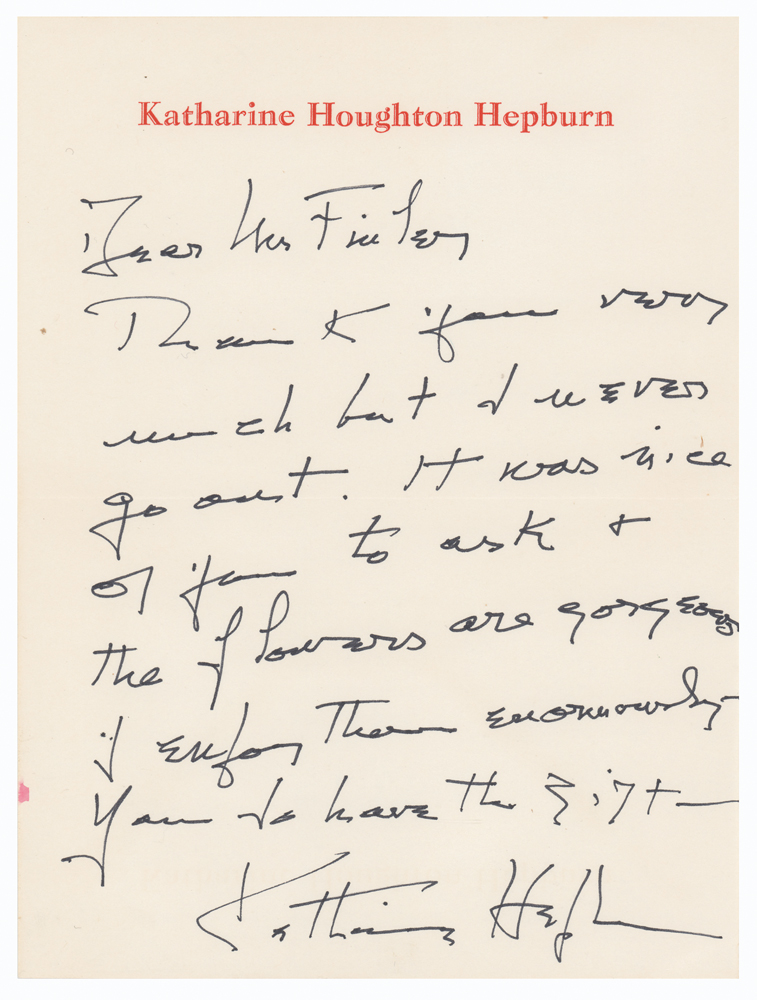 Katharine Houghton Hepburn
Dear Mrs Finley
Thank you very
much but I never
go out. It was nice
of you to ask +
the flowers are gorgeous
I enjoy them enormously -
You do have the gift —
Katharine Hepburn